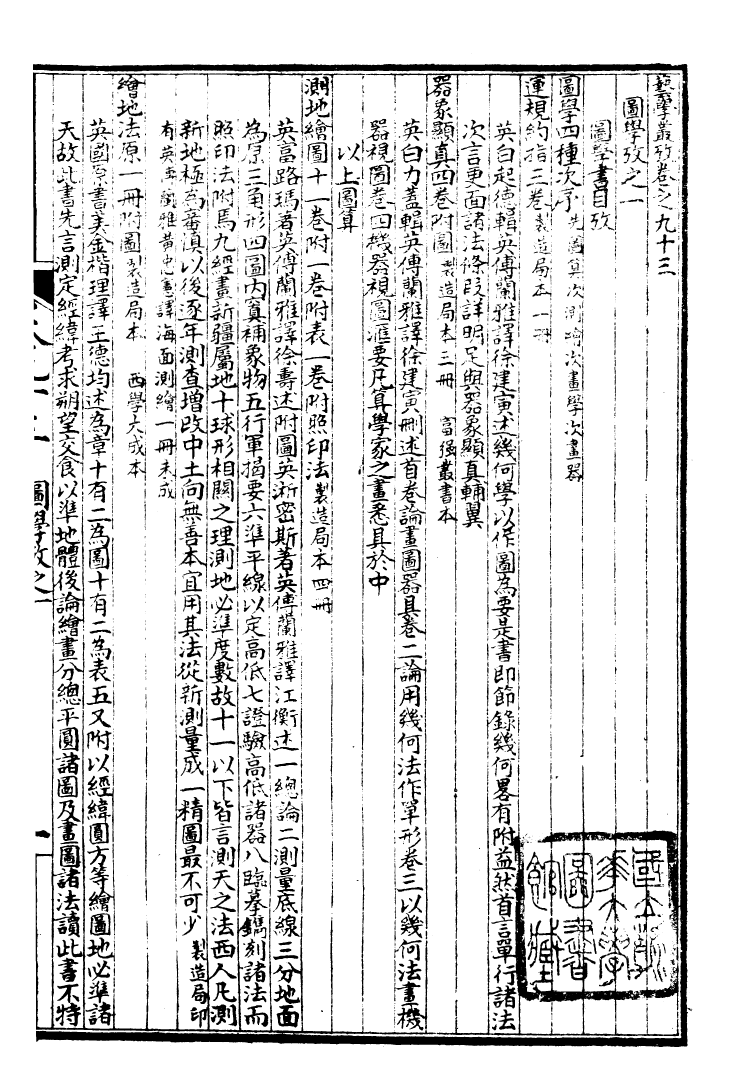 藝學叢攷卷之九十三
圖學攷之一
圖學書目攷
圖學四種次序先圖算次測繪次畫學次畫器
運規約指三卷製造局本一冊
英白起德輯英傅蘭雅譯徐建寅述幾何學以作圖為要是書即節錄幾何畧有附益然首言單行諸法
次言更面諸法條段詳明足與器象顯真輔翼
器象顯真四卷附圖製造局本三冊 富强叢書本
英白力蓋輯英傅蘭雅譯徐建寅刪述首卷論畫圖器具卷二論用幾何法作單形卷三以幾何法畫機
器視圖卷四機器視圖滙要凡算學家之畫悉具於中
以上圖算
測地繪圖十一卷附一卷附表一卷附照印法製造局本四冊
英富路瑪著英傅蘭雅譯徐壽述附圖英浙密斯著英傅蘭雅譯江衡述一總論二測量底線三分地面
為原三角形四圖內實補象物五行軍揭要六準平線以定高低七證驗高低諸器八臨摹鐫刻諸法而
照印法附焉九經畫新疆屬地十球形相關之理測地必準度數故十一以下皆言測天之法西人凡測
新地極為審慎以後逐年測查增改中土向無善本宜用其法從新測量成一精圖最不可少製造局印
有英傅蘭雅黃忠憲譯海面測繪一冊未成
繪地法原一冊附圖製造局本 西學大成本
英國原書美金楷理譯王德均述為章十有二為圖十有二為表五又附以經緯圓方等繪圖地必準諸
天故此書先言測定經緯考求朔望交食以準地體後論繪畫分總平圓諸圖及畫圖諸法讀此書不特
圖學攷之一
國立清華大學圖書館藏